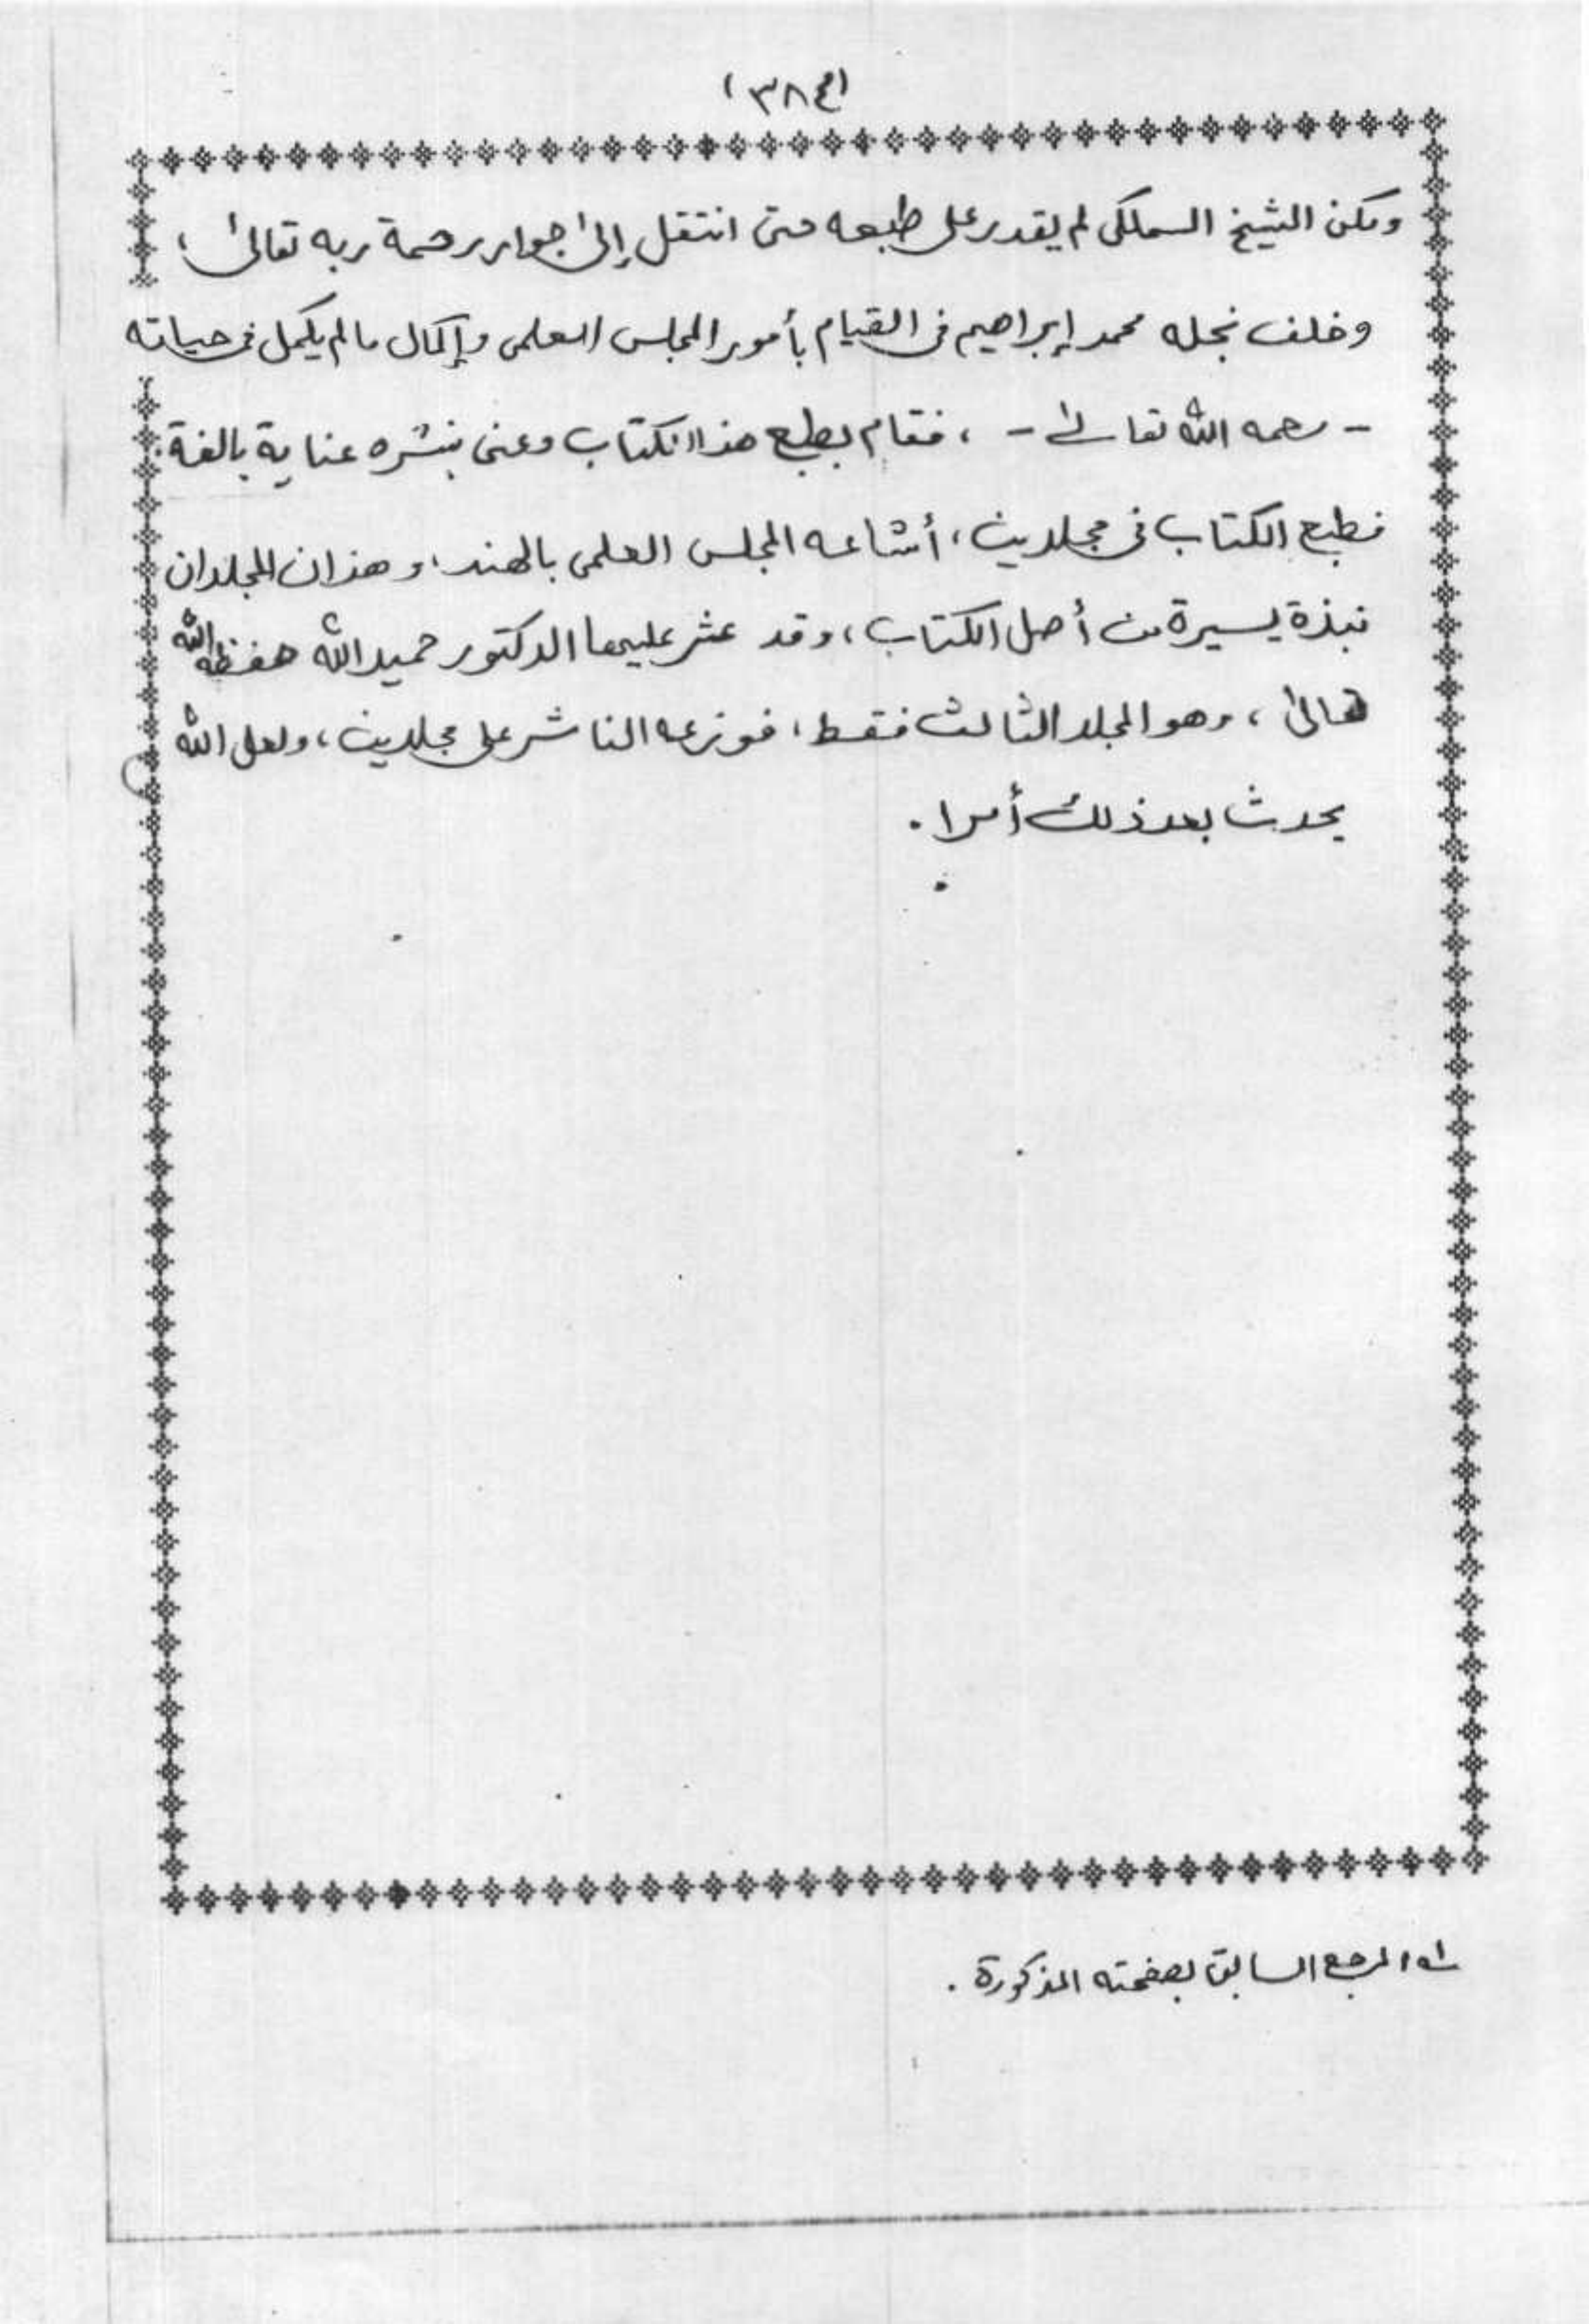 (٣٨٤)
ولكن الشيخ السملكى لم يقدر على طبعه حتى انتقل إلى جوار رحمة ربه تعالى ،
وخلف نجله محمد إبراهيم فى القيام بأمور المجلس العلمى وإكمال ما لم يكمل فى حياته
- رحمه الله تعالى - ، فقام بطبع هذا الكتاب وعنى بنشره عناية بالغة :
فطبع الكتاب فى مجلدين ، أشاعه المجلس العلمى بالهند ، وهذان المجلدان
نبذة يسيرة من أصل الكتاب ، وقد عثر عليها الدكتور حميد الله حفظه الله
تعالى ، وهو المجلد الثالث فقط ، فوزعه الناشر على مجلدين ، ولعل الله
يحدث بعد ذلك أمرا .
المرجع السابق بصفحته المذكورة .